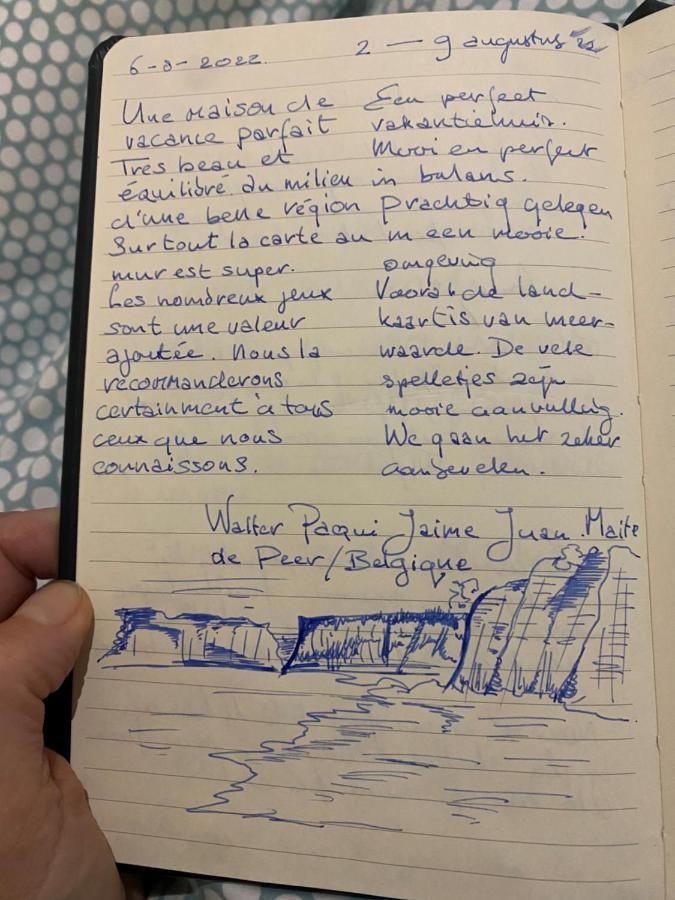 6-8-2022. 2 — 9 augustus '22
Une maison de
vacance parfait
Tres beau et
équilibré au milieu
d'une belle région
Surtout la carte au
mur est super.
Les nombreux jeux
sont une valeur
ajoutée. Nous la
recommanderons
certainment à tous
ceux que nous
connaissons.
Een perfect
vakantiehuis.
Mooi en perfect
in balans.
Prachtig gelegen
in een mooie.
omgeving
Vooral de land-
kaart is van meer-
waarde. De vele
spelletjes zijn
mooie aanvulling.
We gaan het zeker
aanbevelen.
Walter Pacqui Jaime Juan Maite
de Peer/Belgique